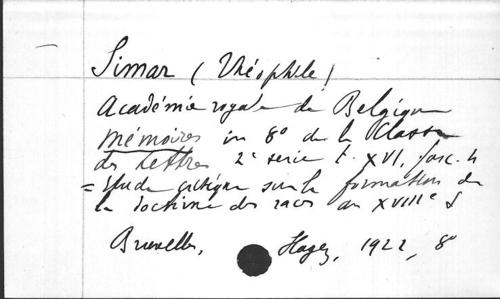 Simar (Théophile)
Académie royale de Belgique
Mémoires in 8° de la Classe
des Lettres 2e serie t. XVI, fasc. 4
= Etude critique sur la formation de
la doctrine des races au XVIIIe S
Bruxelles, Hayez, 1922, 8°